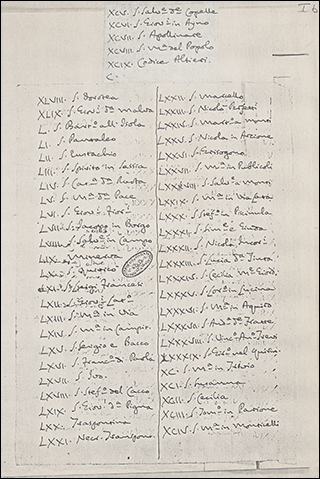 I 6
XCV. S. Salvre dle Copelle
XCVI. S. Giovi in Ayno
XCVII. S. Apollinare
XCVIII. S. Ma del Popolo
XCIX. Codice Altieri.
C.
XLVIII. S. Dorotea
XLIX. S. Giovi dla Malva
L. S. Barto all'Isola
LI. S. Pantaleo
LII. S. Eustachio
LIII. S. Spirito in Sassia
LIV. S. Cata dla Ruota
LV. S. Ma dla Pace
LVI. S. Giovi Fiori
LVII. S. Jacopo in Borgo
LVIII. S. Salvre in Campo
LIX. Minerva
LX. S. Quirico
LXI. S. Luigi Francesi
LXII. S. Giovi Lato
LXIII. S. Ma in Via
LXIV. S. Ma in Campo
LXV. S. Sergio e Bacco
LXVI. S. Franco di Paola
LXVII. S. Ivo.
LXVIII. S. Stefo del Cacco
LXIX. S. Giovi dla Pigna
LXX. Traspontina
LXXI. Necr. Transpono
LXXII. S. Marcello
LXXIII. S. Nicola
LXXIV. S. Marta a Monti
LXXV. S. Nicola in Arcione
LXXVI. S. Crisogono
LXXVII. S. Ma in Publicoli
LXXVIII. S. Salvre a Monti
LXXIX. S. Ma in Via Lata
LXXX. S. Stefo in Piscinula
LXXXI. S. Sime e Giuda
LXXXII. S. Nicola Incoro
LXXXIII. S. Lucia dla Tinta
LXXXIV. S. Cecilia Mte Giord.
LXXXV. S. Loro in Lucina
LXXXVI. S. Ma in Aquiro
LXXXVII. S. Anda dle Fratte
LXXXVIII. S. Vinco Anto Trevi
LXXXIX. S. al Quirin.
XC. S. Ma in
XCI. S. Susanna
XCII. S. Cecilia
XCIII. S. Tomo in Parione
XCIV. S. Ma in Monticelli